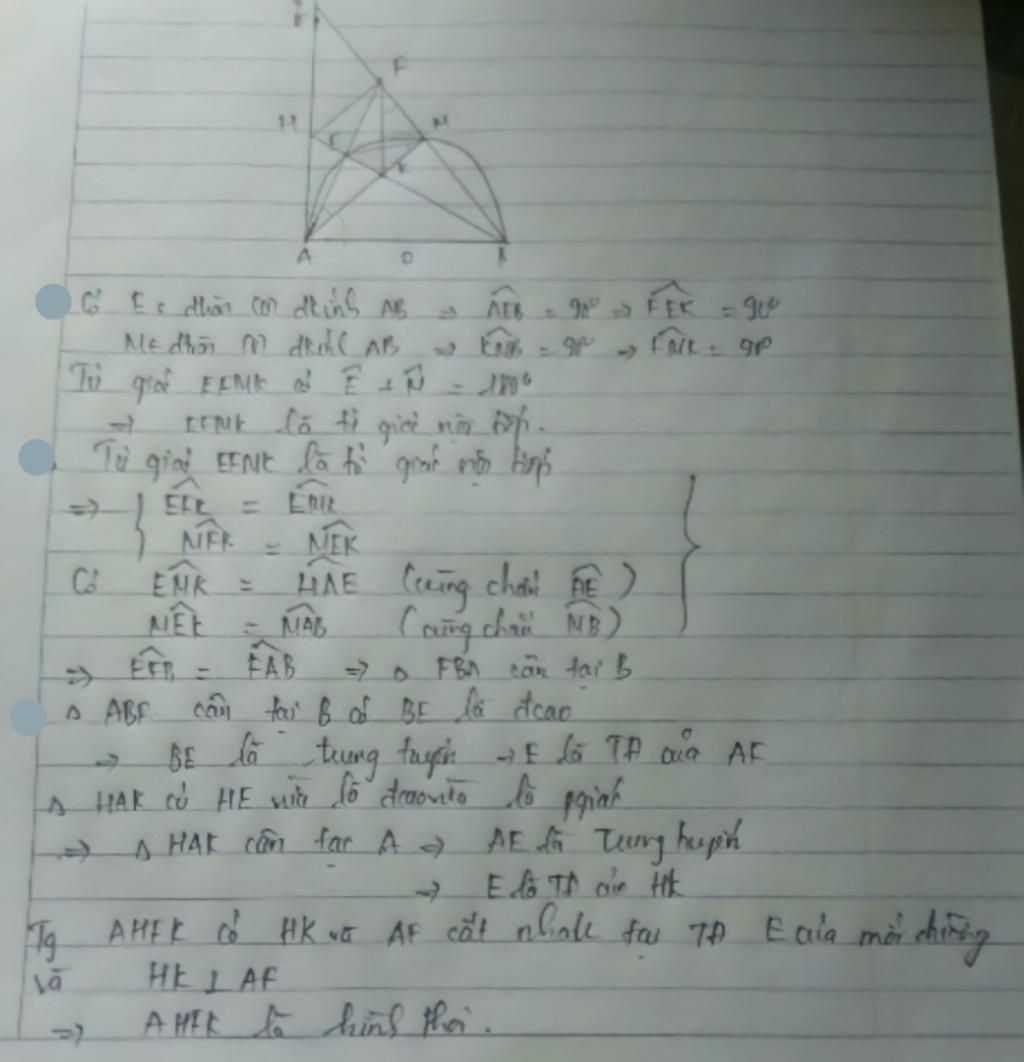 I
F
H
E
M
K
A
O
B
Có E ∈ đtròn (O) đkính AB ⇒ AEB = 90° ⇒ FEK = 90°
M ∈ đtròn (O) đkính AB ⇒ = 90° ⇒ FMK = 90°
Tứ giác EFMK có Ê + M̂ = 180°
⇒ EFMK là tứ giác nội tiếp.
Tứ giác EFMK là tứ giác nội tiếp
⇒ { EFK = EMK
MFK = MEK
Có EMK = HAE (cùng chắn AE)
MEK = MAB (cùng chắn MB)
⇒ EFB = FAB ⇒ Δ FBA cân tại B
Δ ABF cân tại B có BE là đcao
⇒ BE là trung tuyến → E là TĐ của AF
Δ HAK có HE vừa là đcao vừa là pgiác
⇒ Δ HAK cân tại A ⇒ AE là trung tuyến
⇒ E là TĐ của HK
Tg AHFK có HK và AF cắt nhau tại TĐ E của mỗi đường
và HK ⊥ AF
⇒ AHFK là hình thoi.